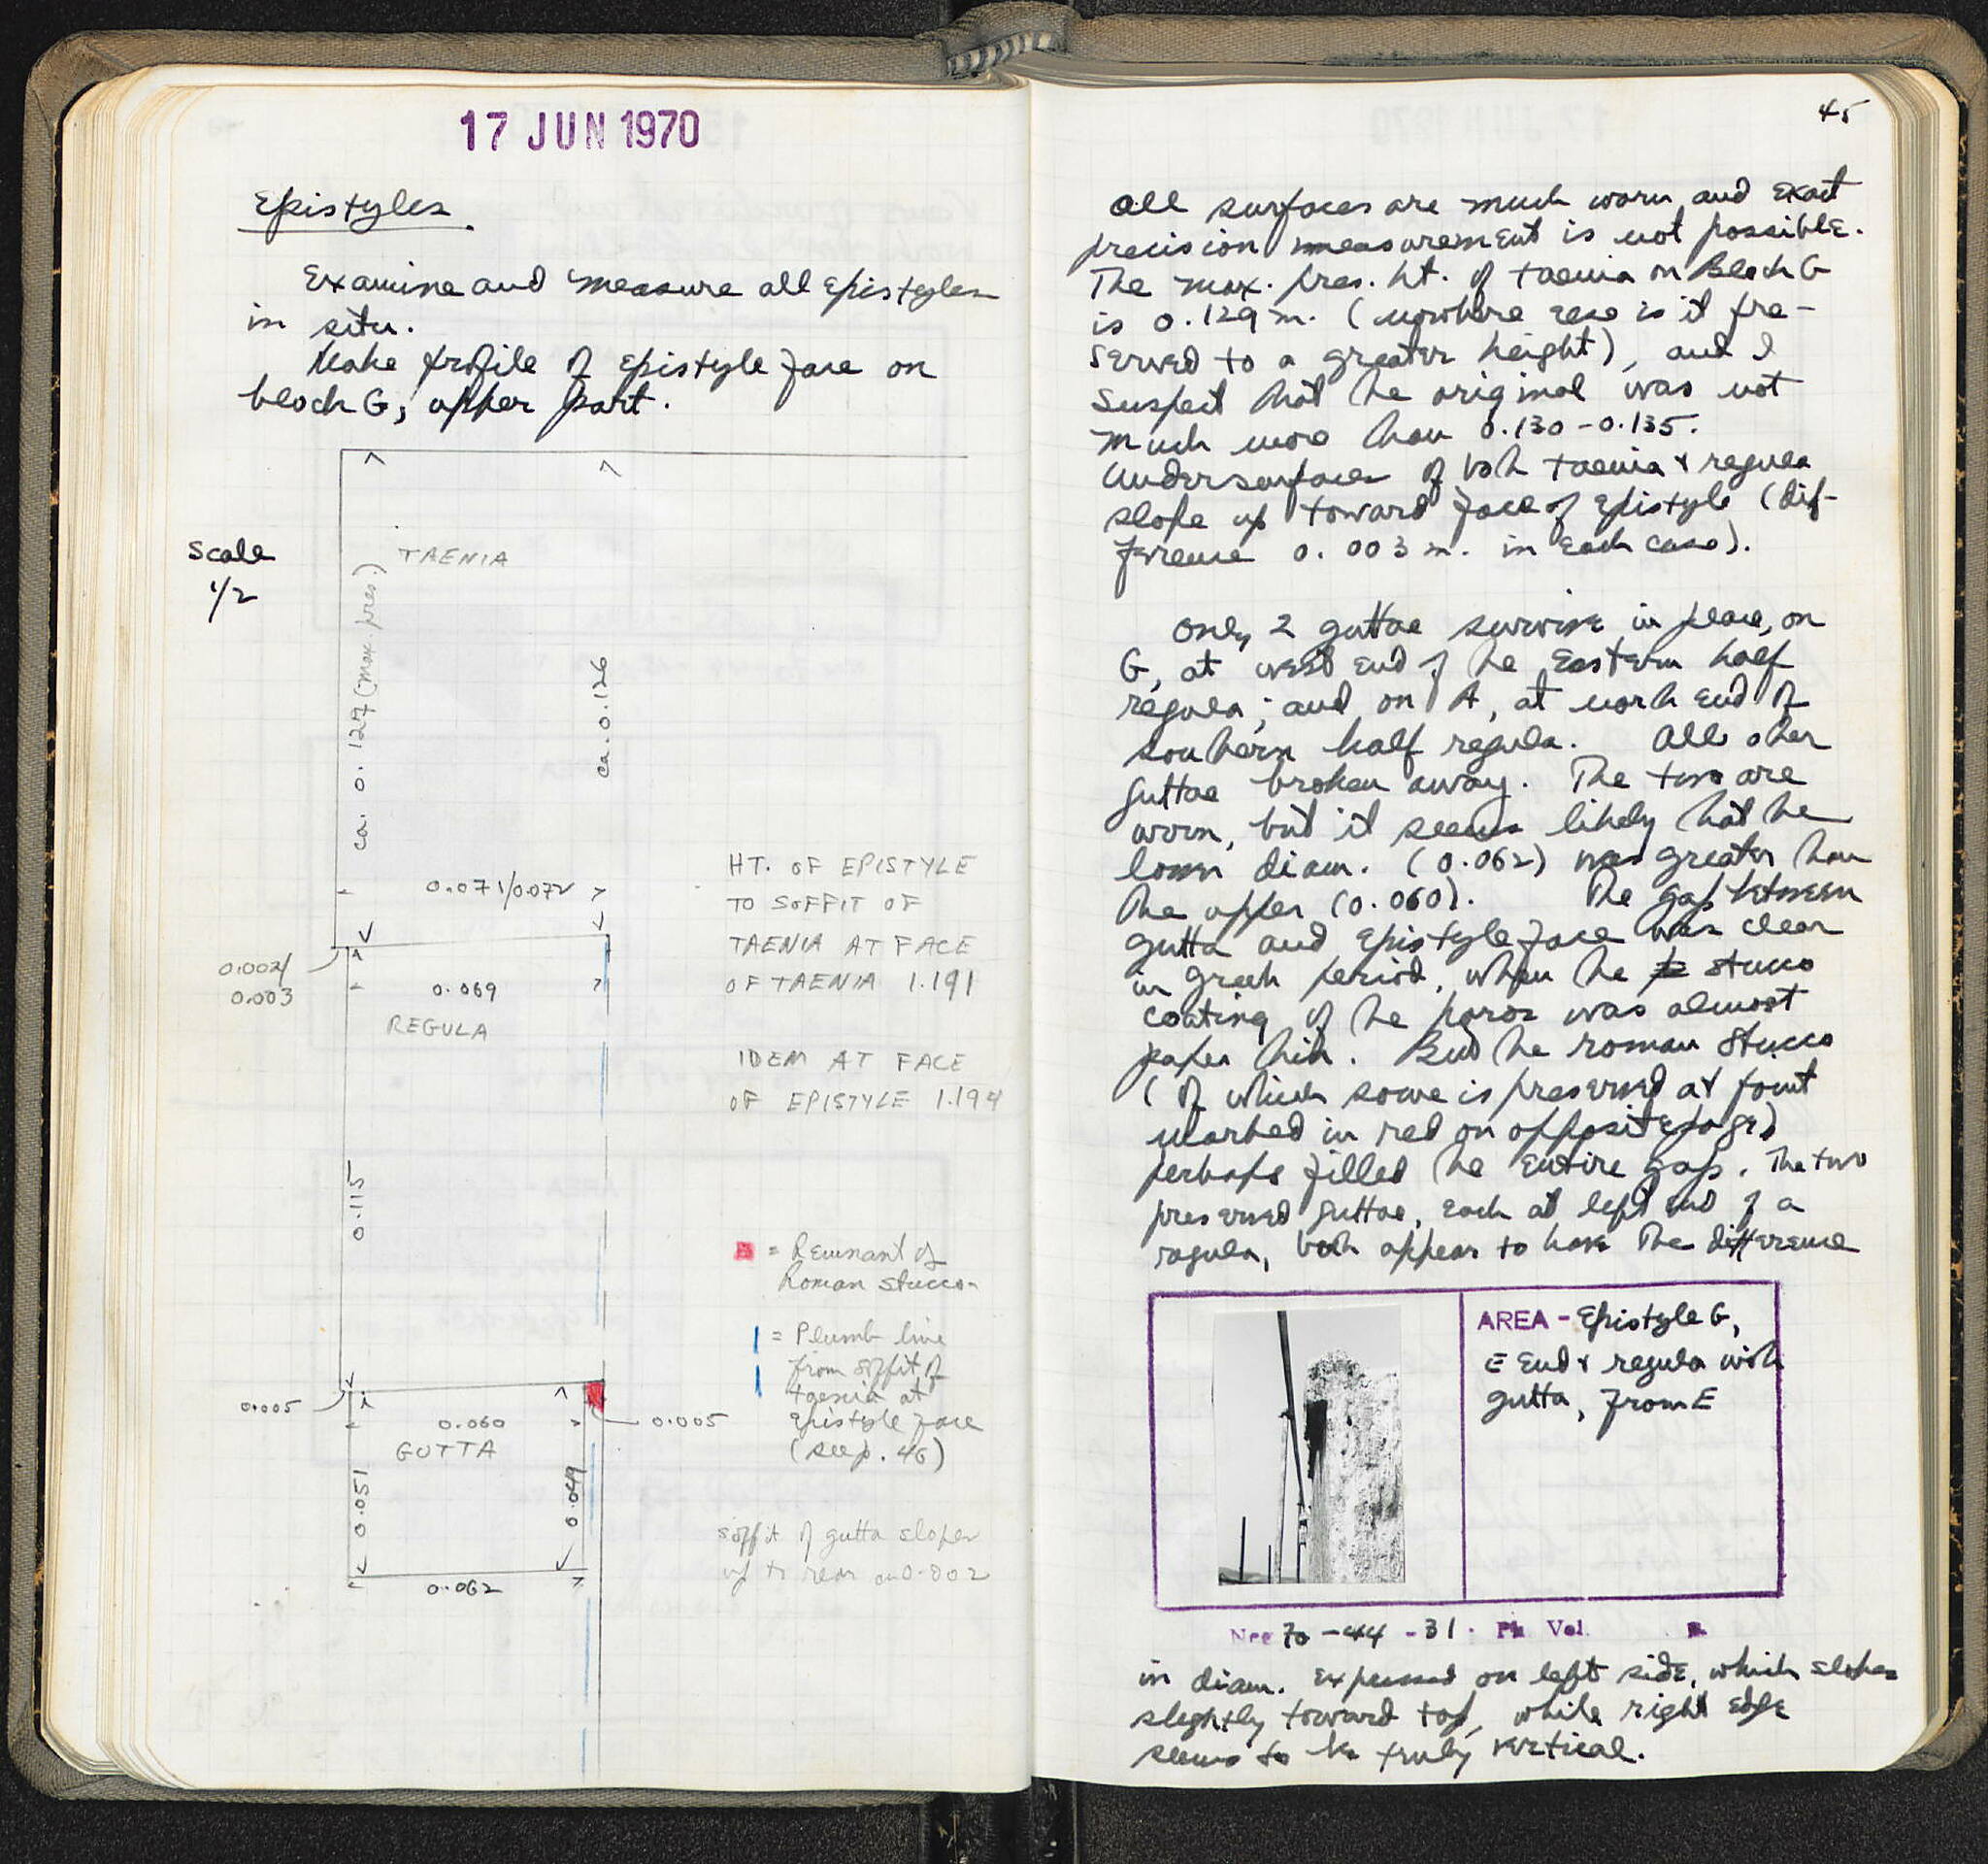 17 JUN 1970
Epistyles
Examine and measure all epistyles
in situ.
Make profile of epistyle face on
block G, upper part.
Scale
1/2
TAENIA
ca. 0.127 (max. pres.)
ca. 0.126
0.071/0.072
0.002/
0.003
0.069
REGULA
0.115
HT. OF EPISTYLE
TO SOFFIT OF
TAENIA AT FACE
OF TAENIA 1.191
IDEM AT FACE
OF EPISTYLE 1.194
= Remnant of
Roman stucco
= Plumb line
from soffit of
taenia at
epistyle face
(see p. 46)
0.005
0.060
0.005
GUTTA
0.051
0.049
0.062
soffit of gutta slopes
up to rear 0.002
45
All surfaces are much worn, and exact
precision measurement is not possible.
The max. pres. ht. of taenia on Block G
is 0.129 m. (nowhere else is it pre-
served to a greater height), and I
suspect that the original was not
much more than 0.130-0.135.
Undersurfaces of both taenia & regula
slope up toward face of epistyle (dif-
ference 0.003 m. in each case).
Only 2 guttae survive in place, on
G, at west end of the Eastern half
regula; and on A, at north end of
southern half regula. All other
guttae broken away. The two are
worn, but it seems likely that the
lower diam. (0.062) was greater than
the upper (0.060). The gap between
gutta and epistyle face was clear
in Greek period, when the stucco
coating of the poros was almost
paper thin. But the Roman stucco
(of which some is preserved at point
marked in red on opposite page)
perhaps filled the entire gap. The two
preserved guttae, each at left end of a
regula, both appear to have the difference
AREA - Epistyle G,
E End & regula with
gutta, from E
Neg 70-44-31. Ph Vol. P.
in diam. expressed on left side, which slopes
slightly toward top, while right edge
seems to be truly vertical.